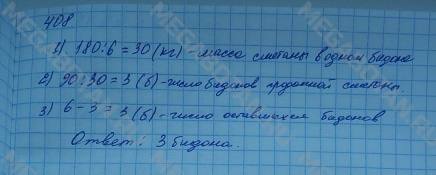 408
1) 180:6=30 (кг) - масса сметаны в одном бидоне
2) 90:30=3 (б) - число бидонов проданной сметаны.
3) 6-3=3 (б) - число оставшихся бидонов
Ответ: 3 бидона.